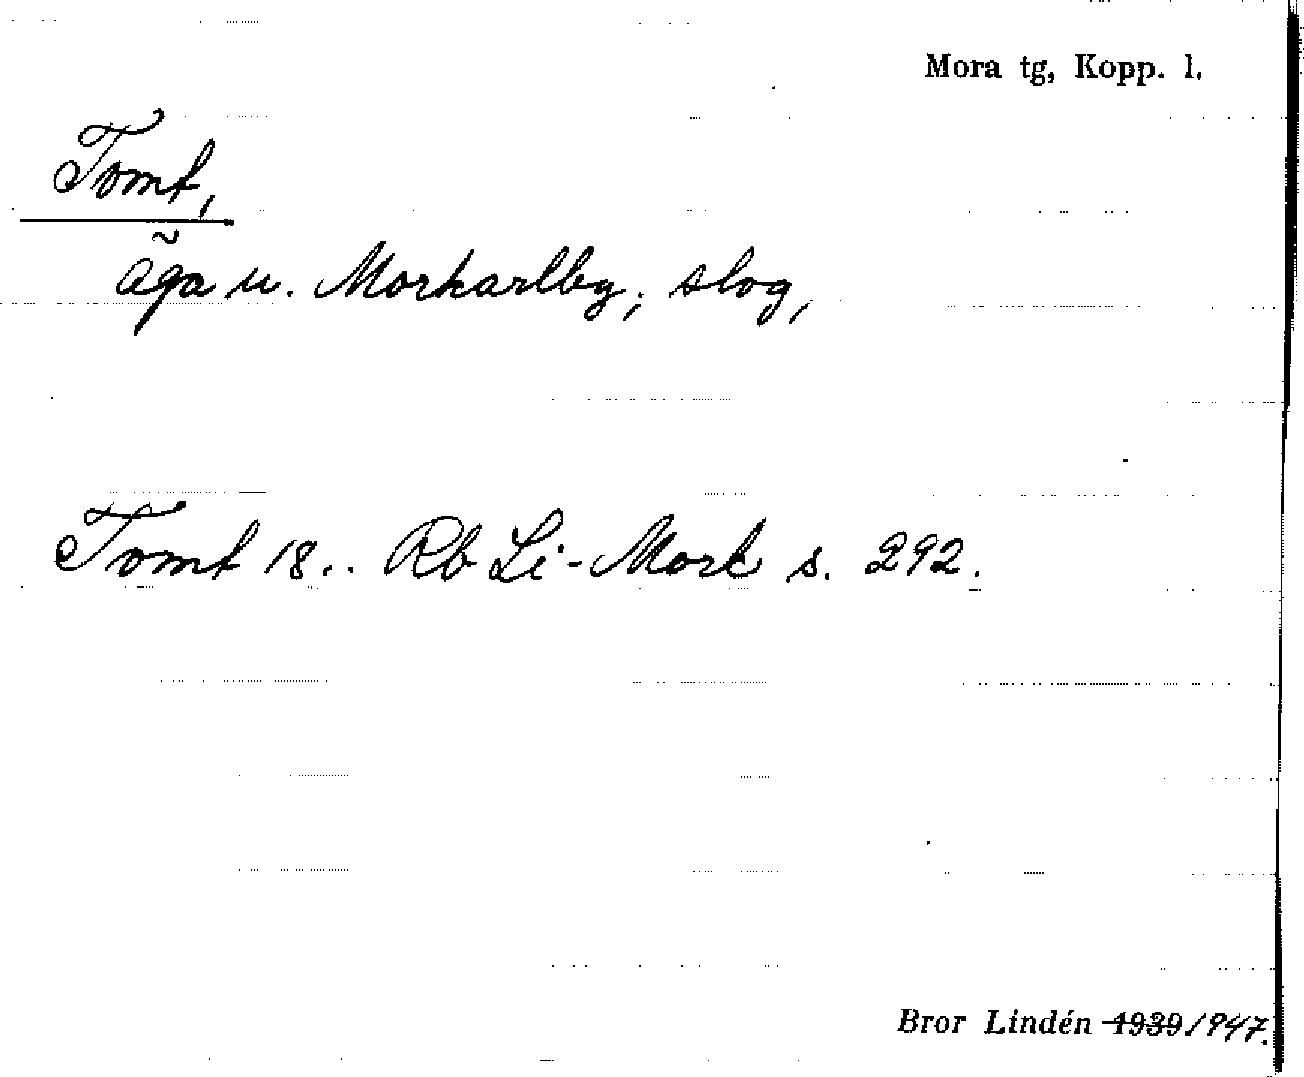 Mora tg, Kopp. l.
Tomt,
äga u. Morkarlby; slog,
Tomt 18.. Rb Li-Mork s. 292.
Bror Lindén 1939 1947.